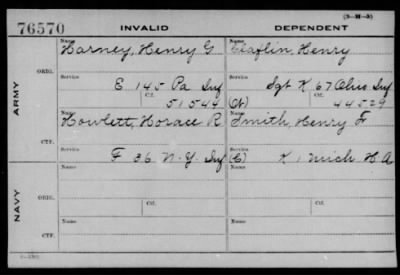 (3-M-3)
76570 INVALID DEPENDENT
Name Name
Harney, Henry G Claflin, Henry
ORIG.
Service Service
E 145 Pa Inf Sgt K 67 Ohio Inf
Ctf. Ctf.
51544 (Ct) 44529
ARMY
Name Name
Howlett, Horace R Smith, Henry F
CTF.
Service Service
F 36 N.Y. Inf (C) K 1 Mich H A
Name Name
ORIG.
Service Ctf. Service Ctf.
NAVY
Name Name
CTF.